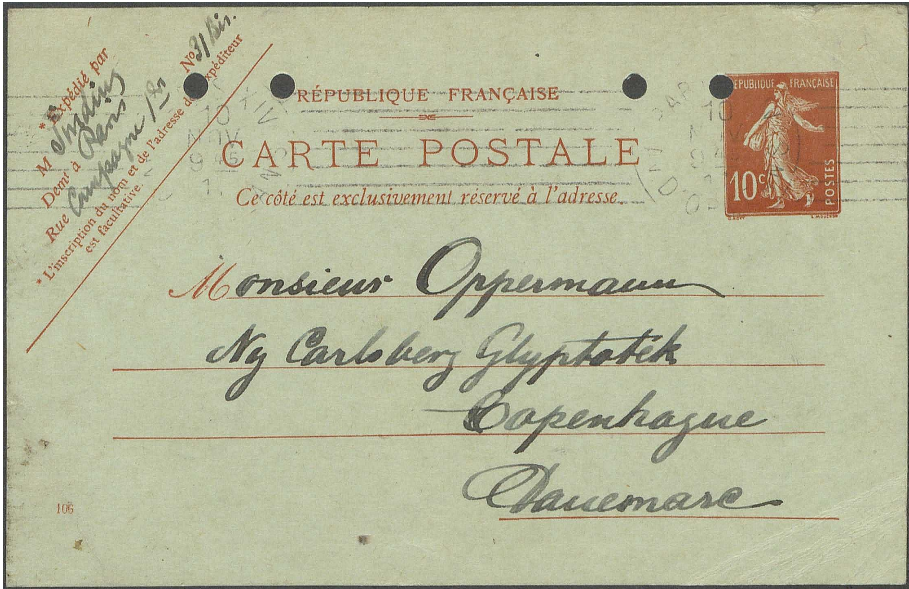 * Expédié par
M Sinding
Demt à Paris
Rue Campagne 1re No 31 bis.
* L'inscription du nom et de l'adresse de l'expéditeur
est facultative.
RÉPUBLIQUE FRANÇAISE
CARTE POSTALE
Ce côté est exclusivement réservé à l'adresse.
RÉPUBLIQUE FRANÇAISE
10c
POSTES
XIV
10
Monsieur Oppermann
Ny Carlsberg Glyptotek
Copenhague
Danemarc
106